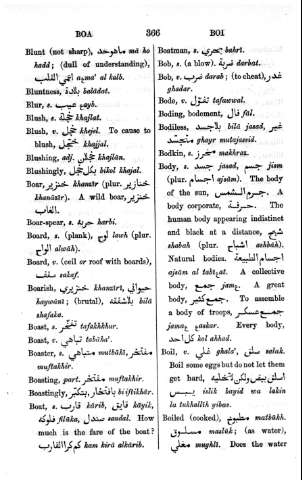 BOA 366 BOI
Blunt (not sharp), ماهوحد má ho
hadd; (dull of understanding),
اعمي القلب aạma' al kalb.
Bluntness, بلادة baládat.
Blur, s. عيب ạayb.
Blush, s. خجلة khajlat.
Blush, v. خجل khajel. To cause to
blush, خجّل khajjal.
Blushing, adj. خجلان khajlán.
Blushingly, بكل خجل bikol khajal.
Boar, خنزير khanzír (plur. خنازير
khanázír). A wild boar, خنزير
الغاب.
Boar-spear, s. حربة harbi.
Board, s. (plank), لوح lawh (plur.
الواح alwáh).
Board, v. (ceil or roof with boards),
سقف sakaf.
Boarish, خنزيري khanzírí, حيواني
haywání; (brutal), بلا شفقة bilá
shafaka.
Boast, s. تفخّر tafakhkhur.
Boast, v. تباهي tabáha'.
Boaster, s. متباهي mutbáhí, مفتخر
muftakhir.
Boasting, part. مفتخر muftakhir.
Boastingly, بافتخار bi iftikhár.
Boat, s. قارب kárib, قايق káyik,
فلوكة flúka, صندل sandal. How
much is the fare of the boat?
كم كرا القارب kam kirá alkárib.
Boatman, s. بحري bahrí.
Bob, s. (a blow). ضربة darbat.
Bob, v. ضرب darab; (to cheat), غدر
ghadar.
Bode, v. تفوّل tafawwal.
Boding, bodement, فال fál.
Bodiless, بلا جسد bilá jasad, غير
متجسد ghayr mutajassid.
Bodkin, s. مخرز makhraz.
Body, s. جسد jasad, جسم jism
(plur. اجسام ajsám). The body
of the sun, جرم الشمس. A
body corporate, حرفة. The
human body appearing indistinct
and black at a distance, شبح
shabah (plur. اشباح ashbáh).
Natural bodies. اجسام الطبيعة
ajsám al tabíạat. A collective
body, جمع jamạ. A great
body, جمع كثير. To assemble
a body of troops, جمع عسكر
jamaạ ạaskar. Every body,
كل احد kol ahhad.
Boil, v. غلي ghala', سلق salak.
Boil some eggs but do not let them
get hard, اسلق بيض ولكن لا تخليه
ييبس islik bayid wa lakin
la tukhallíh yíbas.
Boiled (cooked), مطبوخ matbúkh.
مسلوق maslúk; (as water),
مغلي mughlí. Does the water